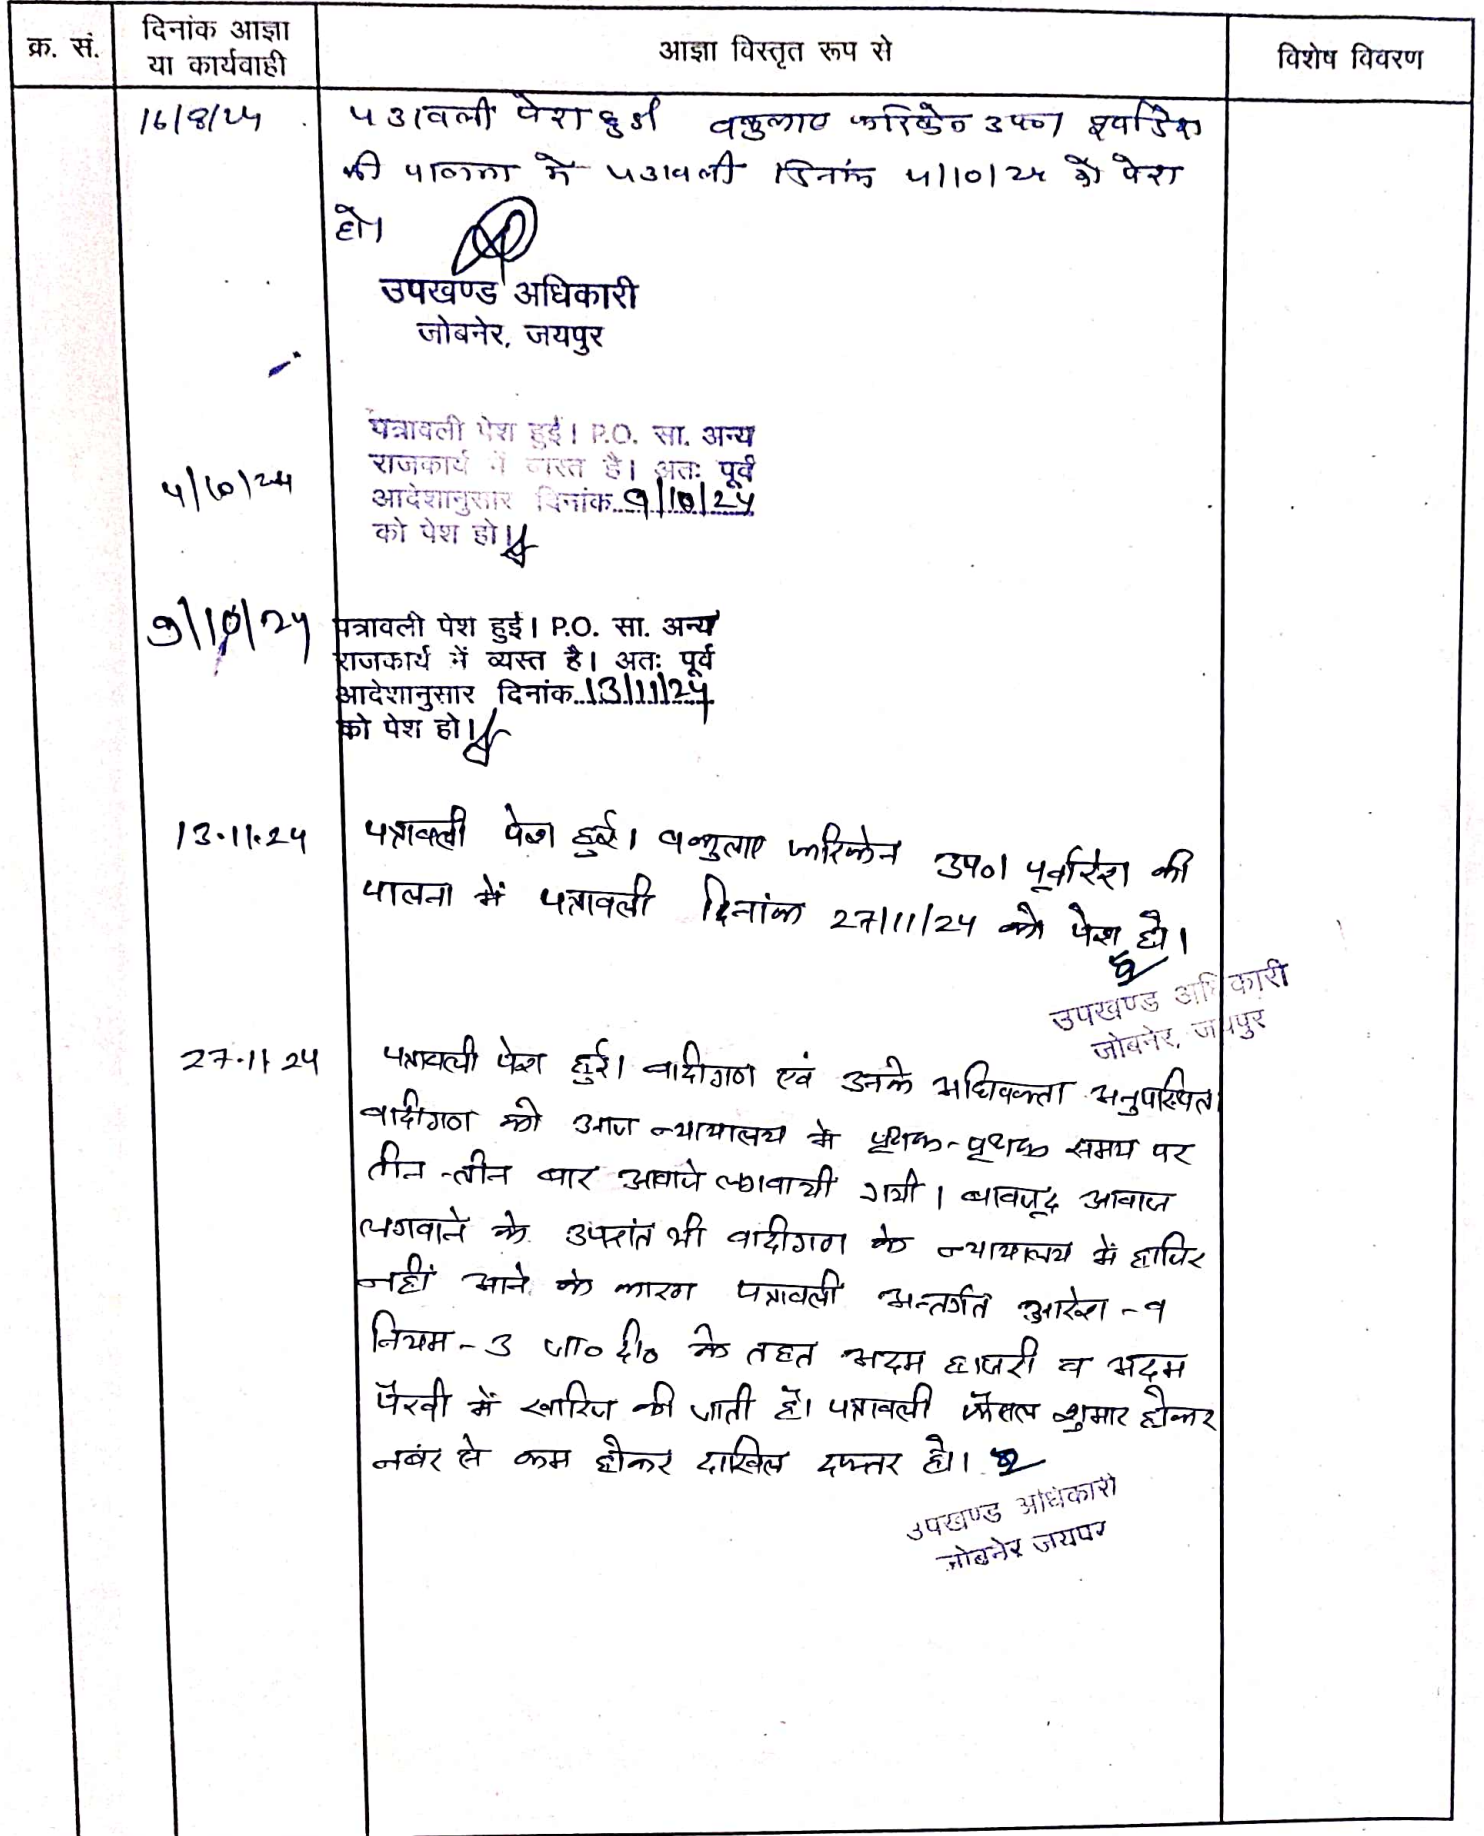 क्र. सं.
दिनांक आज्ञा
या कार्यवाही
आज्ञा विस्तृत रूप से
विशेष विवरण
16/8/24
पत्रावली पेश हुई वकुलाए फरिकेन उप० पूर्वादेश
की पालना में पत्रावली दिनांक 4/10/24 को पेश
हो।
उपखण्ड अधिकारी
जोबनेर, जयपुर
4/10/24
पत्रावली पेश हुई। P.O. सा. अन्य
राजकार्य में व्यस्त है। अतः पूर्व
आदेशानुसार दिनांक 9/10/24
को पेश हो।
9/10/24
पत्रावली पेश हुई। P.O. सा. अन्य
राजकार्य में व्यस्त है। अतः पूर्व
आदेशानुसार दिनांक 13/11/24
को पेश हो।
13.11.24
पत्रावली पेश हुई। वकुलाए फरिकेन उप०। पूर्वादेश की
पालना में पत्रावली दिनांक 27/11/24 को पेश हो।
उपखण्ड अधिकारी
जोबनेर, जयपुर
27.11.24
पत्रावली पेश हुई। वादीगण एवं उनके अधिवक्ता अनुपस्थित।
वादीगण को आज न्यायालय में पृथक-पृथक समय पर
तीन-तीन बार आवाजे लगवायी गयी। बावजूद आवाज
लगवाने के उपरांत भी वादीगण के न्यायालय में हाजिर
नहीं आने के कारण पत्रावली अन्तर्गत आदेश-9
नियम-3 जा० दी० के तहत अदम हाजरी व अदम
पैरवी में खारिज की जाती है। पत्रावली फैसल शुमार होकर
नबंर से कम होकर दाखिल दफ्तर हो।
उपखण्ड अधिकारी
जोबनेर जयपुर